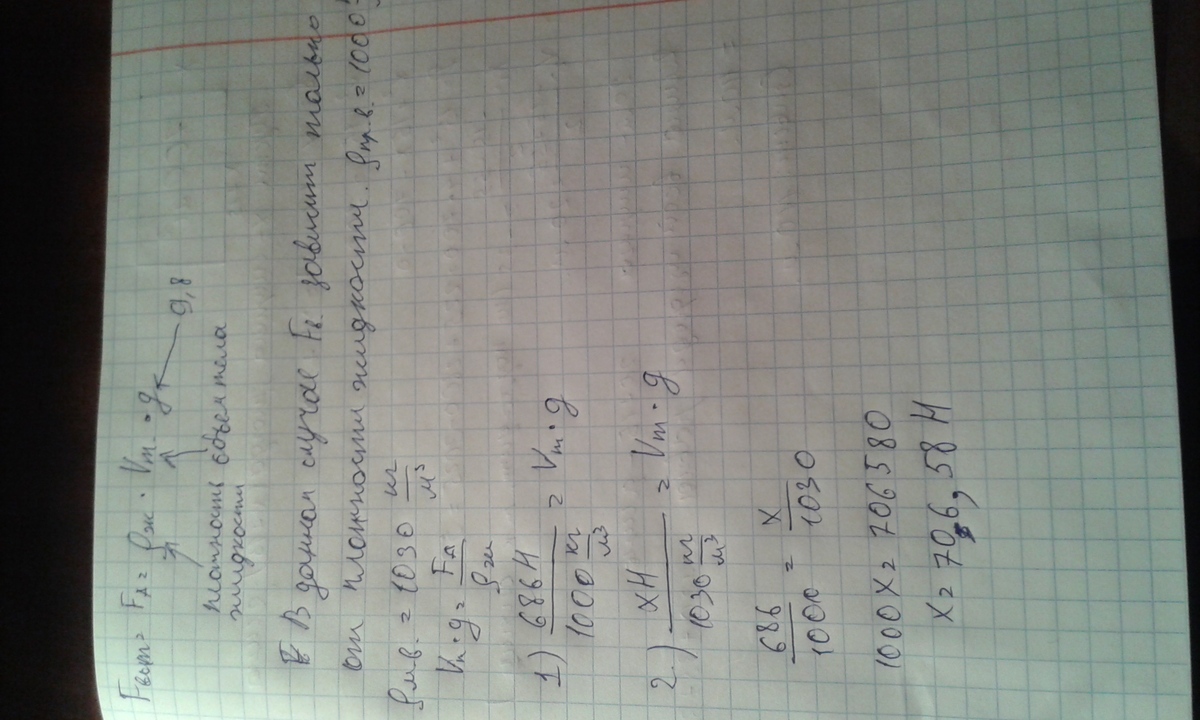 Fвыт = FА = ρж · Vт · g
плотность жидкости
объем тела
9,8
В данном случае Fв зависит только
от плотности жидкости. ρпр.в. = 1000
ρм.в. = 1030 кг/м³
Vт · g = FА/ρж
1) 686Н/1000 кг/м³ = Vт · g
2.) хН/1030 кг/м³ = Vт · g
686/1000 = х/1030
1000х = 706580
х = 706,58 Н